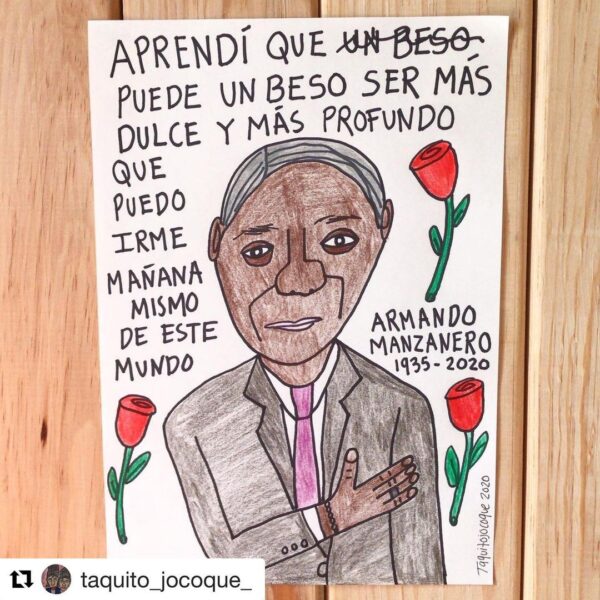 APRENDÍ QUE UN BESO
PUEDE UN BESO SER MÁS
DULCE Y MÁS PROFUNDO
QUE
PUEDO
IRME
MAÑANA
MISMO
DE ESTE
MUNDO
ARMANDO
MANZANERO
1935-2020
Taquitojocoque 2020
taquito_jocoque_